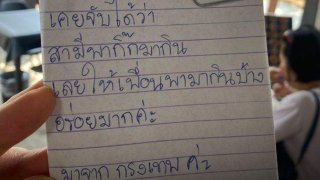 เคยจับได้ว่า
สามีพากิ๊กมากิน
เลยให้เพื่อนพามากินบ้าง
อร่อยมากค่ะ
มาจาก กรุงเทพ ค่ะ